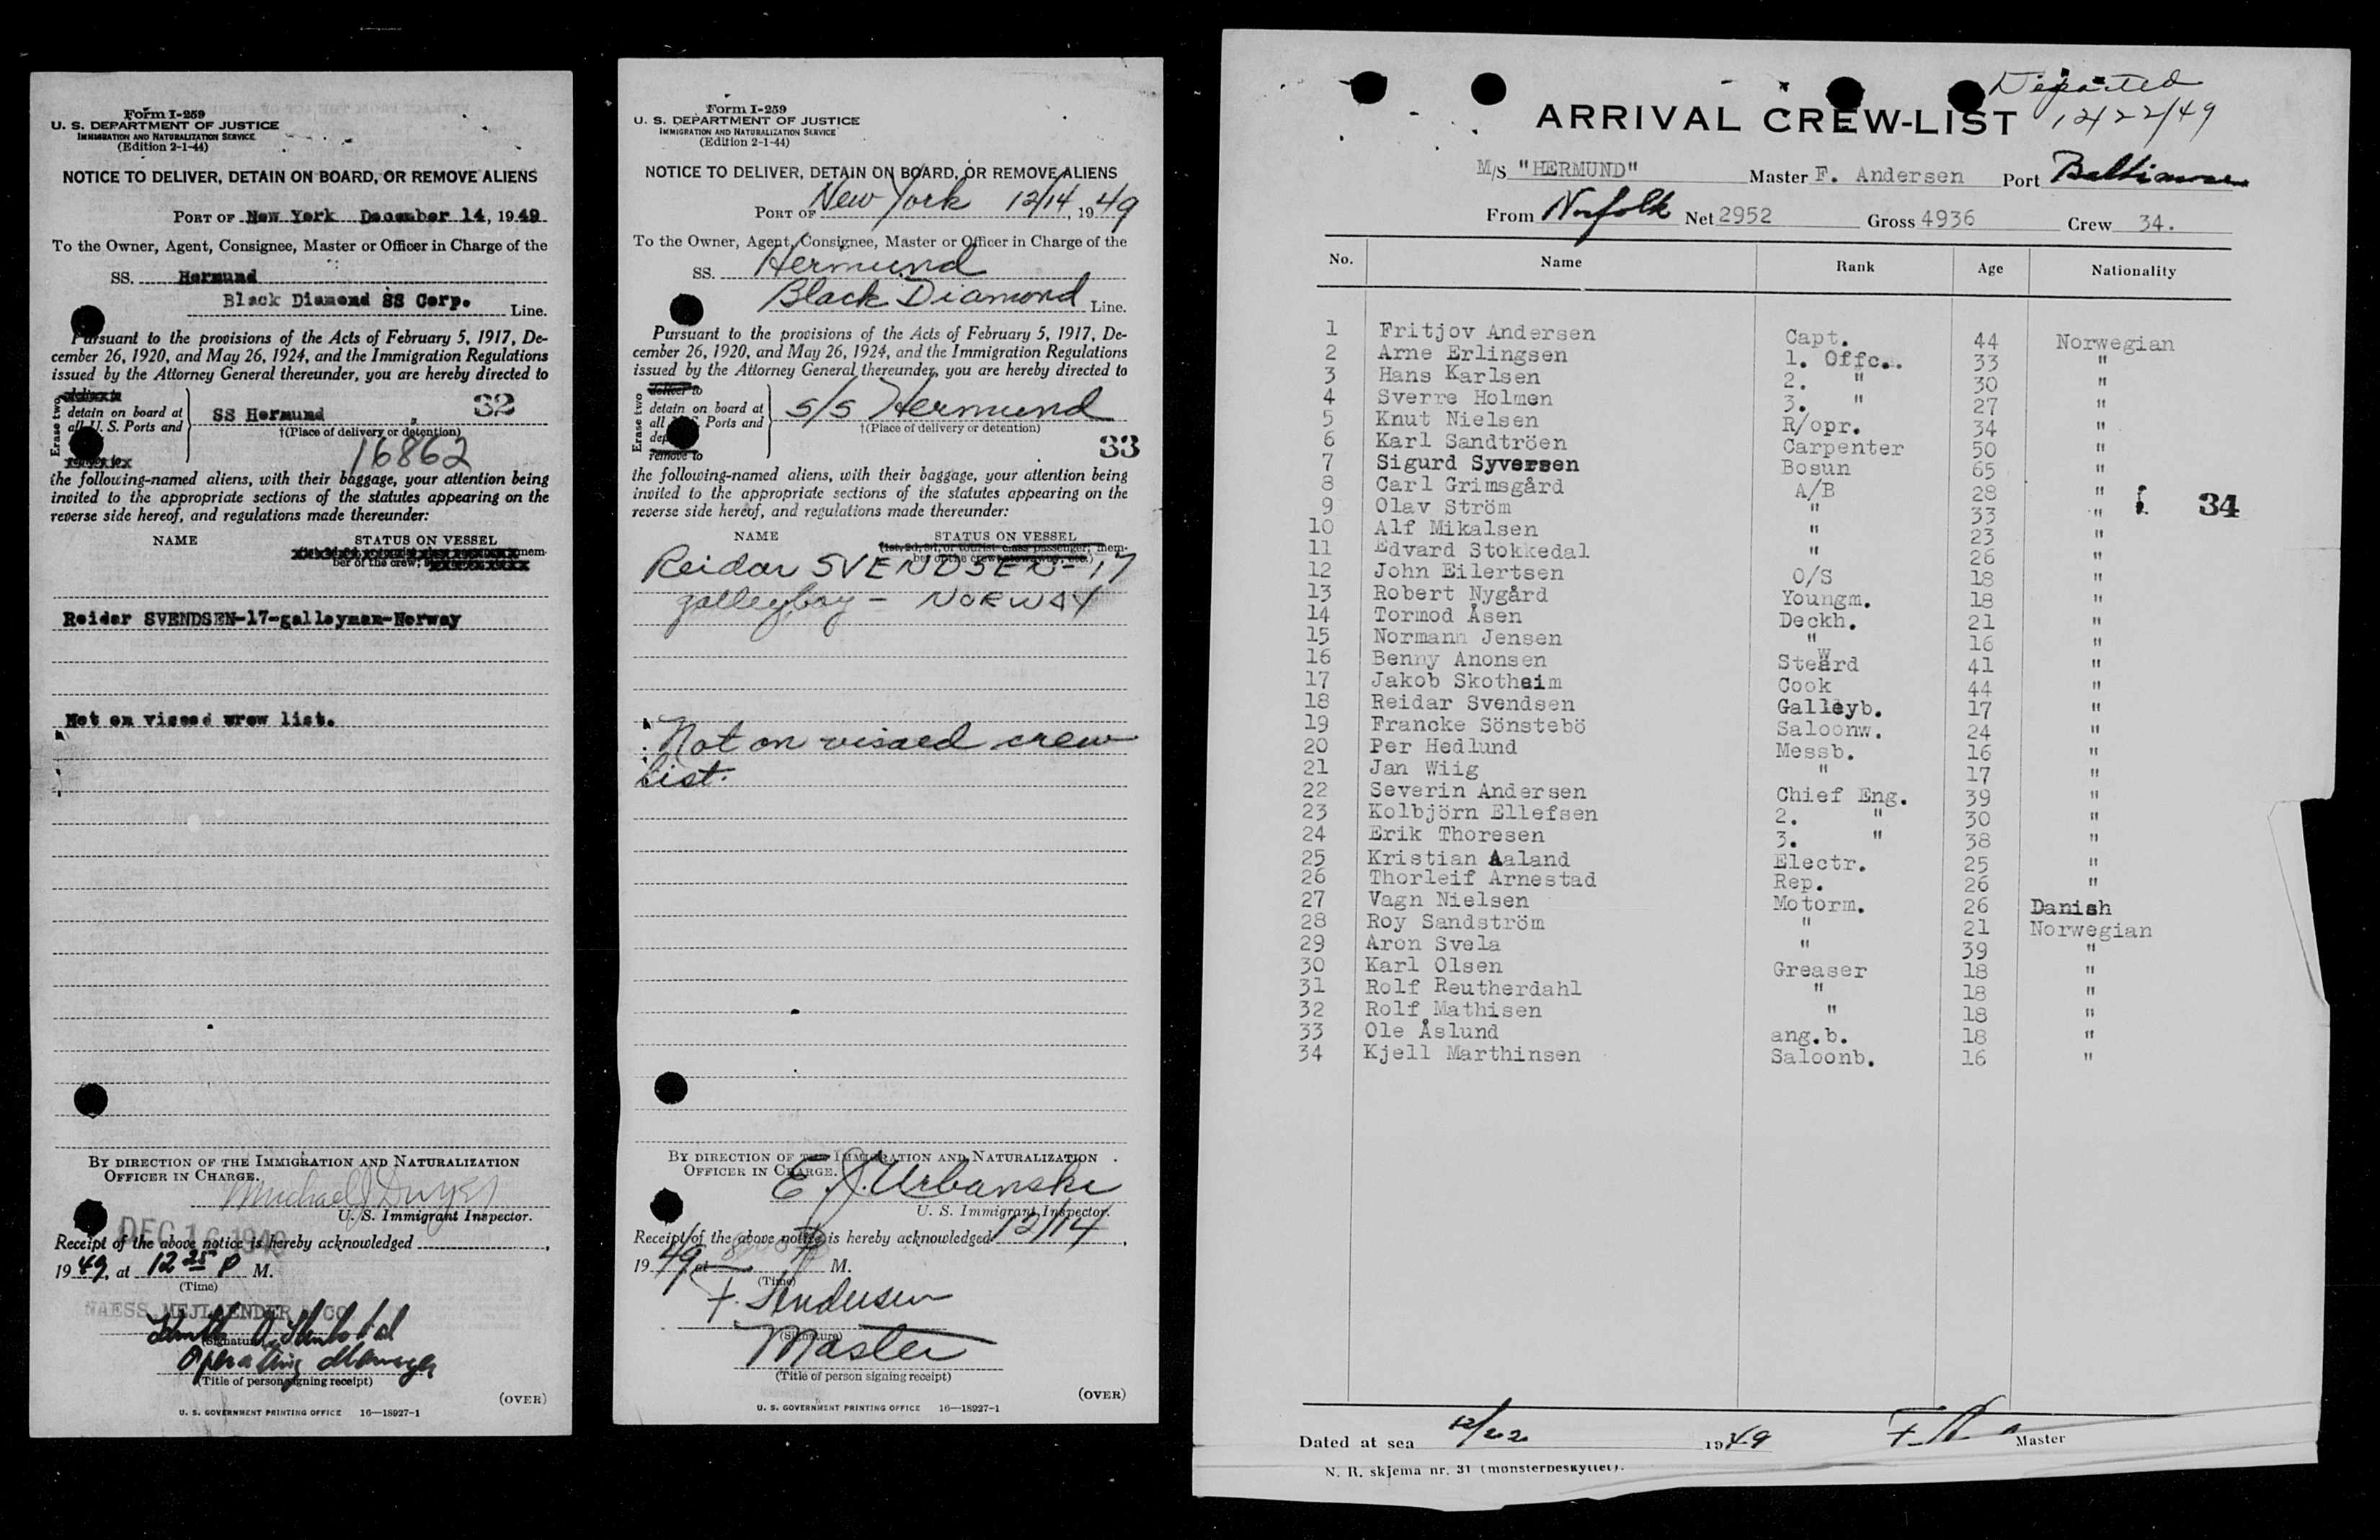 Form I-259
U. S. DEPARTMENT OF JUSTICE
IMMIGRATION AND NATURALIZATION SERVICE
(Edition 2-1-44)
NOTICE TO DELIVER, DETAIN ON BOARD, OR REMOVE ALIENS
PORT OF New York December 14, 1949
To the Owner, Agent, Consignee, Master or Officer in Charge of the
SS. Hermund
Black Diamond SS Corp. Line.
Pursuant to the provisions of the Acts of February 5, 1917, De-
cember 26, 1920, and May 26, 1924, and the Immigration Regulations
issued by the Attorney General thereunder, you are hereby directed to
Erase two
detain on board at
all U. S. Ports and
SS Hermund 32
†(Place of delivery or detention)
16862
the following-named aliens, with their baggage, your attention being
invited to the appropriate sections of the statutes appearing on the
reverse side hereof, and regulations made thereunder:
NAME STATUS ON VESSEL
mem-
ber of the crew,
Reidar SVENDSEN-17-galleyman-Norway
Not on visaed crew list.
BY DIRECTION OF THE IMMIGRATION AND NATURALIZATION
OFFICER IN CHARGE.
Michael J Dwyer
U. S. Immigrant Inspector.
DEC 16 1949
Receipt of the above notice is hereby acknowledged
1949, at 12 25 P M.
(Time)
NAESS MEJLAENDER & CO
(Signature)
Operating Manager
(Title of person signing receipt)
(OVER)
U. S. GOVERNMENT PRINTING OFFICE 16—18927-1
Form I-259
U. S. DEPARTMENT OF JUSTICE
IMMIGRATION AND NATURALIZATION SERVICE
(Edition 2-1-44)
NOTICE TO DELIVER, DETAIN ON BOARD, OR REMOVE ALIENS
PORT OF New York 12/14, 1949
To the Owner, Agent, Consignee, Master or Officer in Charge of the
SS. Hermund
Black Diamond Line.
Pursuant to the provisions of the Acts of February 5, 1917, De-
cember 26, 1920, and May 26, 1924, and the Immigration Regulations
issued by the Attorney General thereunder, you are hereby directed to
Erase two
deliver to
detain on board at
all Ports and
S/S Hermund
†(Place of delivery or detention)
remove to
33
the following-named aliens, with their baggage, your attention being
invited to the appropriate sections of the statutes appearing on the
reverse side hereof, and regulations made thereunder:
NAME STATUS ON VESSEL
(1st, 2d, 3d, or tourist class passenger, mem-
ber of the crew, stowaway, etc.)
Reidar SVENDSEN-17
galleyboy - NORWAY
Not on visaed crew
list.
BY DIRECTION OF THE IMMIGRATION AND NATURALIZATION
OFFICER IN CHARGE.
E. J. Urbanski
U. S. Immigrant Inspector.
Receipt of the above notice is hereby acknowledged 12/14,
1949 at M.
(Time)
F. Andersen
(Signature)
Master
(Title of person signing receipt)
(OVER)
U. S. GOVERNMENT PRINTING OFFICE 16—18927-1
Departed
12/22/49
ARRIVAL CREW-LIST
M/S "HERMUND" Master F. Andersen Port Baltimore
From Norfolk Net 2952 Gross 4936 Crew 34.
No. Name Rank Age Nationality
1 Fritjov Andersen Capt. 44 Norwegian
2 Arne Erlingsen 1. Offc. 33 "
3 Hans Karlsen 2. " 30 "
4 Sverre Holmen 3. " 27 "
5 Knut Nielsen R/opr. 34 "
6 Karl Sandtröen Carpenter 50 "
7 Sigurd Syversen Bosun 65 "
8 Carl Grimsgård A/B 28 "
9 Olav Ström " 33 "
34
10 Alf Mikalsen " 23 "
11 Edvard Stokkedal " 26 "
12 John Eilertsen O/S 18 "
13 Robert Nygård Youngm. 18 "
14 Tormod Åsen Deckh. 21 "
15 Normann Jensen " 16 "
16 Benny Anonsen Steward 41 "
17 Jakob Skotheim Cook 44 "
18 Reidar Svendsen Galleyb. 17 "
19 Francke Sönstebö Saloonw. 24 "
20 Per Hedlund Messb. 16 "
21 Jan Wiig " 17 "
22 Severin Andersen Chief Eng. 39 "
23 Kolbjörn Ellefsen 2. " 30 "
24 Erik Thoresen 3. " 38 "
25 Kristian Aaland Electr. 25 "
26 Thorleif Arnestad Rep. 26 "
27 Vagn Nielsen Motorm. 26 Danish
28 Roy Sandström " 21 Norwegian
29 Aron Svela " 39 "
30 Karl Olsen Greaser 18 "
31 Rolf Reutherdahl " 18 "
32 Rolf Mathisen " 18 "
33 Ole Åslund ang.b. 18 "
34 Kjell Marthinsen Saloonb. 16 "
Dated at sea 12/22 1949 Master
N. R. skjema nr. 31 (mønsterbeskyttet).